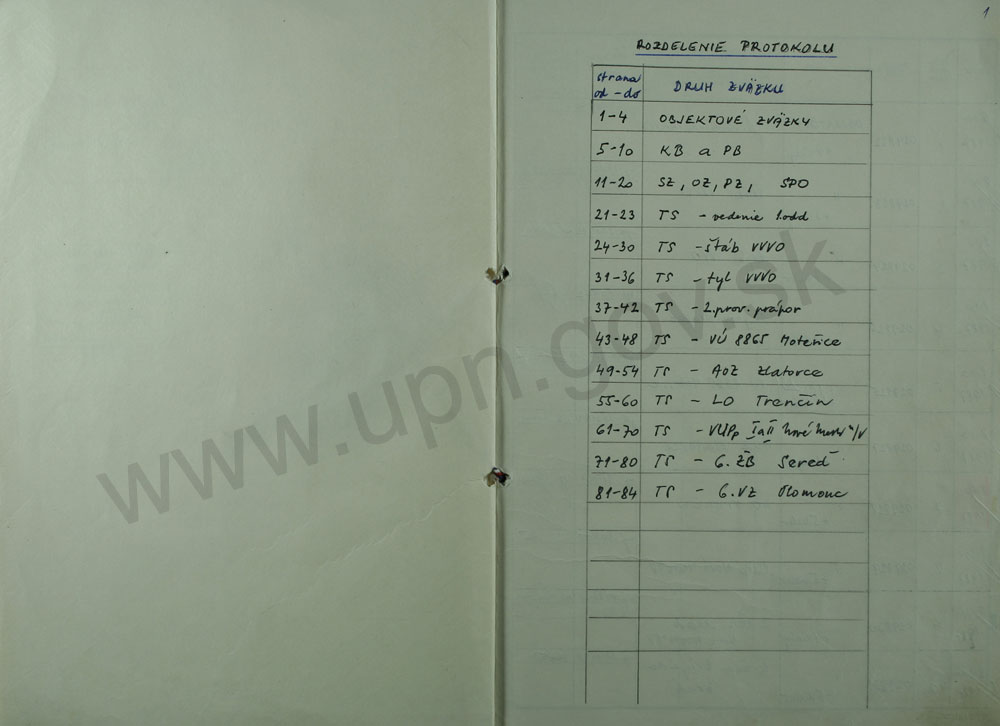 1
ROZDELENIE PROTOKOLU
strana od - do DRUH ZVÄZKU
1-4 OBJEKTOVÉ ZVÄZKY
5-10 KB a PB
11-20 SZ, OZ, PZ, SPO
21-23 TS - vedenie 1.odd
24-30 TS - štáb VVVO
31-36 TS - tyl VVVO
37-42 TS - 2.prov. prápor
43-48 TS - VÚ 8865 Motešice
49-54 TS - AOZ Zlatovce
55-60 TS - LO Trenčín
61-70 TS - I a II Nové n/V
71-80 TS - 6. ŽB Sereď
81-84 TS - 6. VZ Olomouc
www.upn.gov.sk